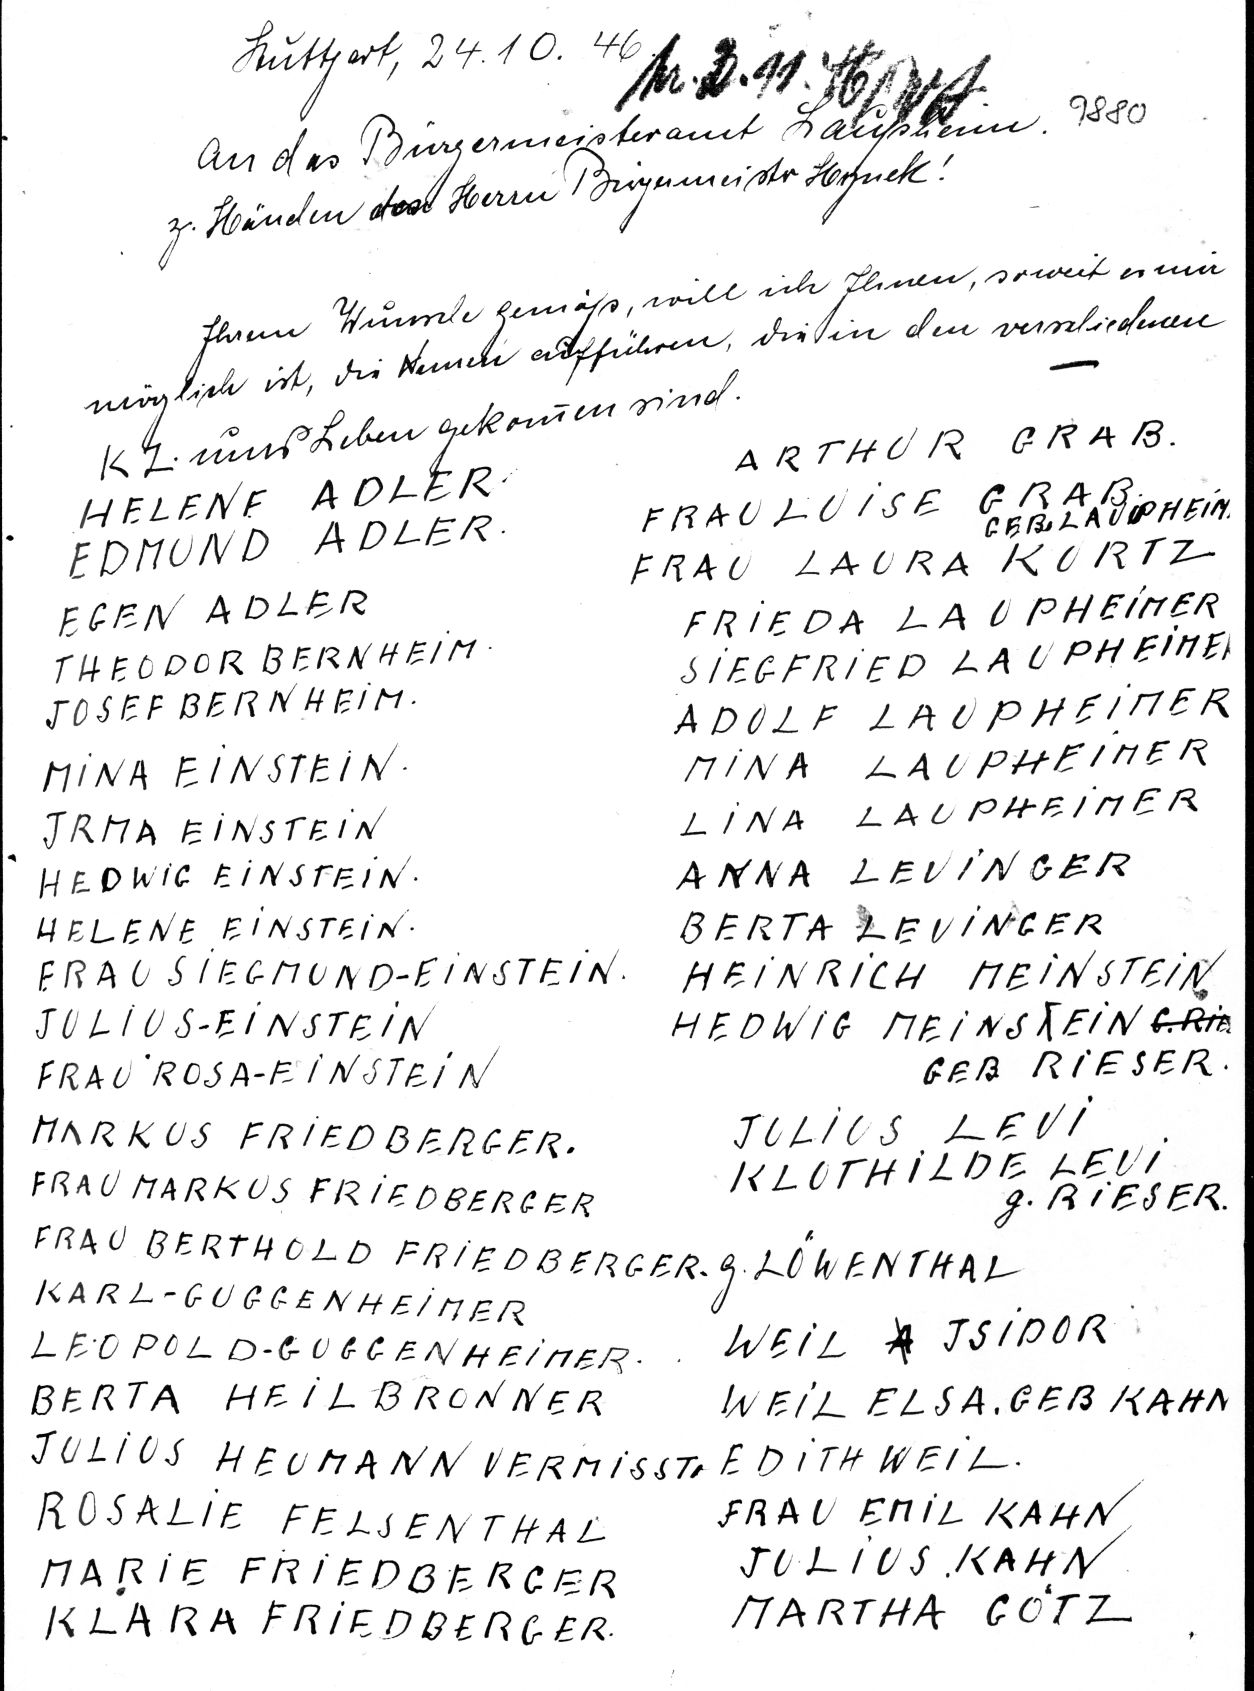 Stuttgart, 24.10.46
2.11.46
9880
An das Bürgermeisteramt Laupheim.
z. Händen des Herrn Bürgermeister Hynek!
Ihrem Wunsche gemäß, will ich Ihnen, soweit es mir
möglich ist, die Namen aufführen, die in den verschiedenen
KZ. ums Leben gekom̅en sind.
HELENE ADLER.
EDMUND ADLER.
EGEN ADLER
THEODOR BERNHEIM.
JOSEF BERNHEIM.
MINA EINSTEIN.
JRMA EINSTEIN
HEDWIG EINSTEIN.
HELENE EINSTEIN.
FRAU SIEGMUND-EINSTEIN.
JULIUS-EINSTEIN
FRAU ROSA-EINSTEIN
MARKUS FRIEDBERGER.
FRAU MARKUS FRIEDBERGER
FRAU BERTHOLD FRIEDBERGER. g. LÖWENTHAL
KARL-GUGGENHEIMER
LEOPOLD-GUGGENHEIMER.
BERTA HEILBRONNER
JULIUS HEUMANN VERMISST.
ROSALIE FELSENTHAL
MARIE FRIEDBERGER
KLARA FRIEDBERGER.
ARTHUR GRAB.
FRAU LUISE GRAB.
GEB. LAUPHEIM.
FRAU LAURA KURTZ
FRIEDA LAUPHEIMER
SIEGFRIED LAUPHEIMER
ADOLF LAUPHEIMER
MINA LAUPHEIMER
LINA LAUPHEIMER
ANNA LEVINGER
BERTA LEVINGER
HEINRICH MEINSTEIN
HEDWIG MEINSTEIN G. RIE
GEB RIESER.
JULIUS LEVI
KLOTHILDE LEVI
g. RIESER.
WEIL JSIDOR
WEIL ELSA. GEB KAHN
EDITH WEIL.
FRAU EMIL KAHN
JULIUS KAHN
MARTHA GÖTZ